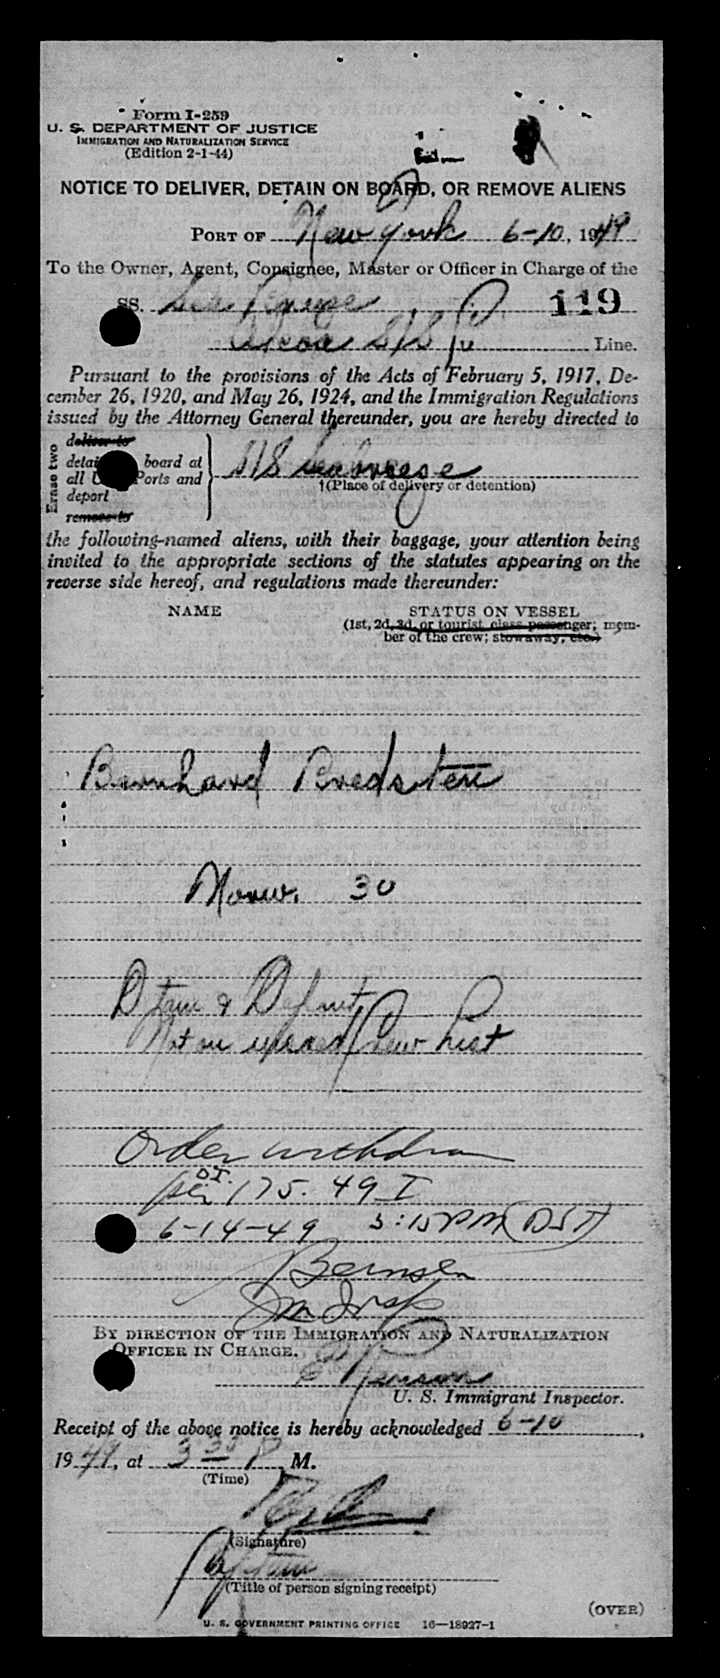 Form I-259
U. S. DEPARTMENT OF JUSTICE
IMMIGRATION AND NATURALIZATION SERVICE
(Edition 2-1-44)
NOTICE TO DELIVER, DETAIN ON BOARD, OR REMOVE ALIENS
PORT OF New York 6-10, 1949
To the Owner, Agent, Consignee, Master or Officer in Charge of the
SS. Sea
119
Alcoa S/S Co Line.
Pursuant to the provisions of the Acts of February 5, 1917, De-
cember 26, 1920, and May 26, 1924, and the Immigration Regulations
issued by the Attorney General thereunder, you are hereby directed to
Erase two
deliver to
detain board at
all U Ports and
deport
remove to
S/S Seabreeze
†(Place of delivery or detention)
the following-named aliens, with their baggage, your attention being
invited to the appropriate sections of the statutes appearing on the
reverse side hereof, and regulations made thereunder:
NAME STATUS ON VESSEL
(1st, 2d, 3d, or tourist class passenger; mem-
ber of the crew; stowaway, etc.)
Bernhard Bredsten
Norw. 30
Detain & Deport
Not on visaed Crew List
Order withdrawn
per DT. 175. 49 I
6-14-49 3:15 PM (DST)
Bernsen
Im Insp
BY DIRECTION OF THE IMMIGRATION AND NATURALIZATION
OFFICER IN CHARGE.
U. S. Immigrant Inspector.
Receipt of the above notice is hereby acknowledged 6-10,
1949, at 3 35 P M.
(Time)
(Signature)
(Title of person signing receipt)
(OVER)
U. S. GOVERNMENT PRINTING OFFICE 16—18927-1